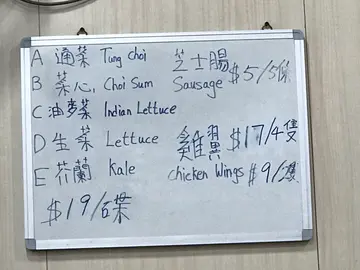 A 通菜 Tung choi 芝士腸
B 菜心, Choi Sum Sausage $5/5條
C 油麥菜 Indian Lettuce
D 生菜 Lettuce 雞翼 $17/4隻
E 芥蘭 Kale chicken Wings $9/2隻
$19/碟